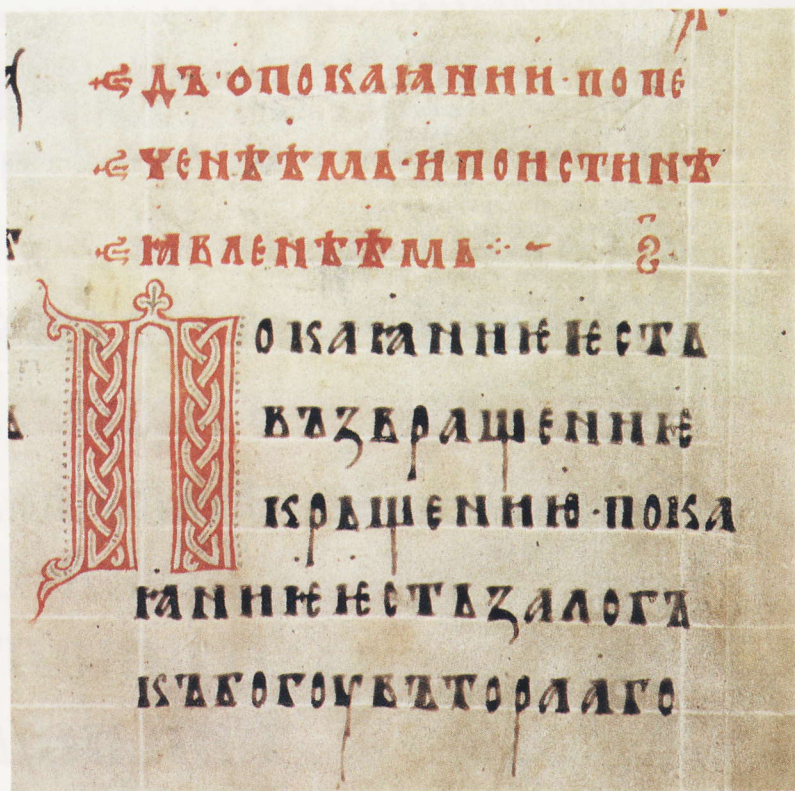 дъ·опокаꙗнии·попе
ченѣѣмь·ипоистинѣ
ꙗвленѣѣмь ⁘ ~
Покаꙗниѥѥсть
възвращениѥ
крьщению·пока
ꙗниѥѥстьзалогъ
къбогоувъторааго